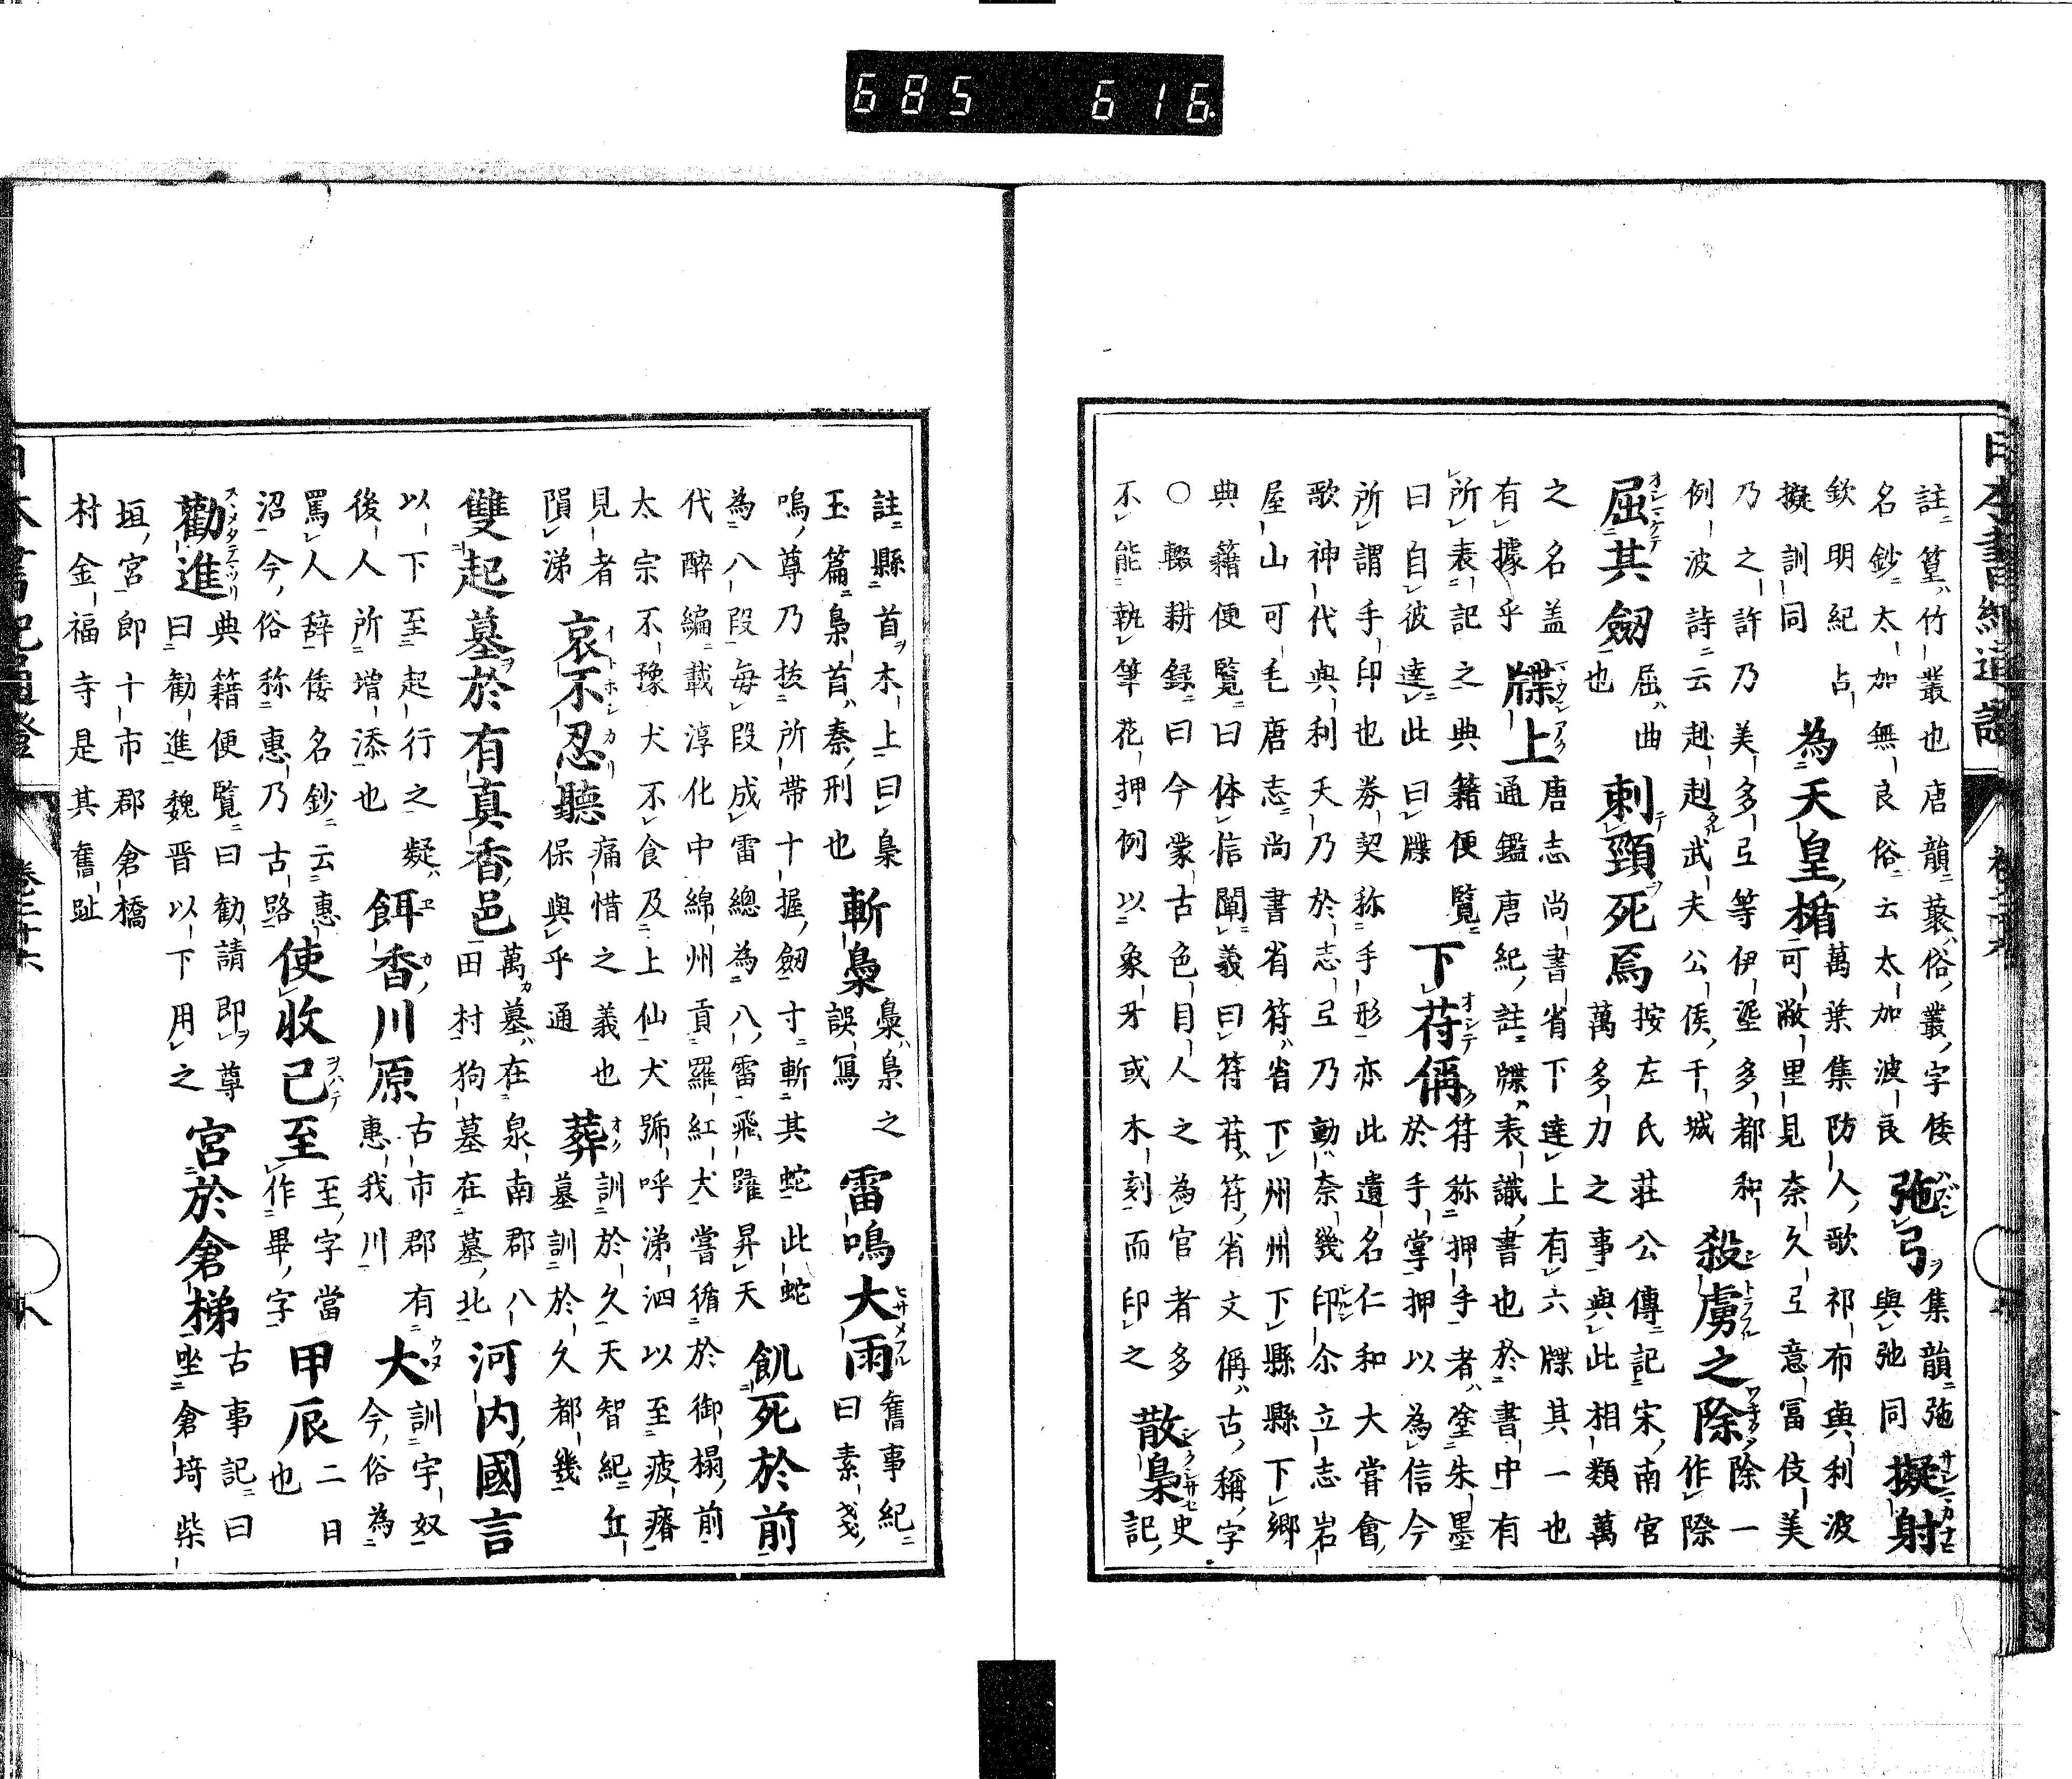 日本書紀通證
註篁竹叢也唐韻藂俗叢字倭
名鈔太加無良俗云太加波良
弛弓
集韻弛
與弛同
擬射
欽明紀占
擬訓同
為天皇楯
萬葉集防人歌祁布與利波
可敝里見奈久弖意富伎美
乃之許乃美多弖等伊埿多都和
例波詩云赳赳武夫公侯干城
殺虜之除
除一
作際
屈其劒
屈曲
也
刺頸死焉
按左氏莊公傳記宋南宮
萬多力之事與此相類萬
之名盖
有據乎
牒上
唐志尚書省下達上有六牒其一也
通鑑唐紀註牒表識書也於書中有
所表記之典籍便覧
曰自彼達此曰牒
下苻偁
符称押手者塗朱墨
於手掌押以為信今
所謂手印也券契称手形亦此遺名仁和大嘗會
歌神代與利天乃於志弖乃動奈幾印尒立志岩
屋山可毛唐志尚書省符省下州州下縣縣下鄉
典籍便覧曰体信闡義曰符苻符省文偁古稱字
○輟耕録曰今蒙古色目人之為官者多
不能執筆花押例以象牙或木刻而印之
散梟
史
記
註縣首木上曰梟
玉篇梟首秦刑也
斬梟
梟梟之
誤冩
雷鳴大雨
舊事紀
曰素戔
嗚尊乃拔所帶十握劒寸斬其蛇此蛇
為八段毎段成雷總為八雷飛躍昇天
飢死於前
代醉編載淳化中綿州貢羅紅犬嘗循於御榻前
太宗不豫犬不食及上仙犬號呼涕泗以至疲瘠
見者
隕涕
哀不忍聽
痛惜之義也
保與乎通
葬
訓於久天智紀丘
墓訓於久都幾
雙起墓於有真香邑
萬墓在泉南郡八
田村狗墓在墓北
河内國言
以下至起行之疑
後人所增添也
餌香川原
古市郡有
惠我川
犬
訓宇奴
今俗為
罵人辞倭名鈔云惠
沼今俗称惠乃古路
使收已至
至字當
作畢字
甲辰
二日
也
勸進
典籍便覧曰勧請即尊
曰勧進魏晋以下用之
宮於倉梯
古事記曰
坐倉埼柴
垣宮即十市郡倉橋
村金福寺是其舊趾
685 616